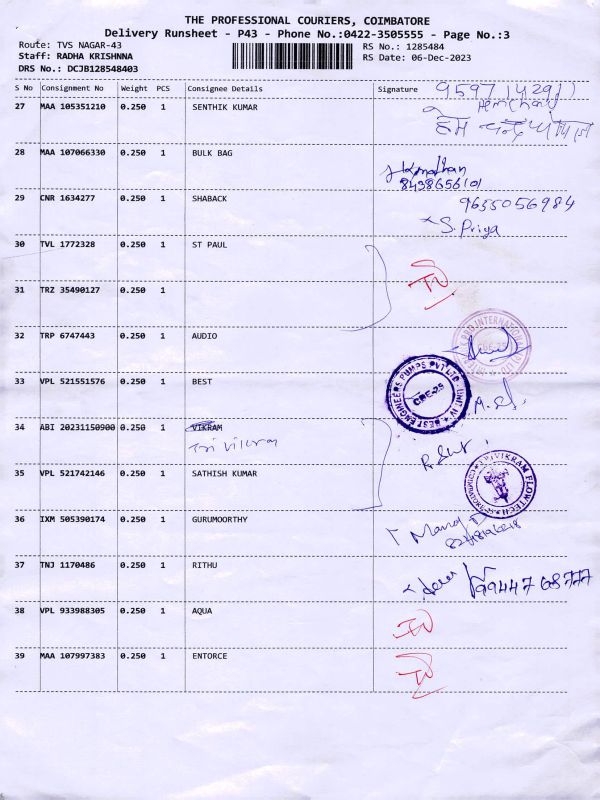 THE PROFESSIONAL COURIERS, COIMBATORE
Delivery Runsheet - P43 - Phone No.:0422-3505555 - Page No.:3
Route: TVS NAGAR-43 RS No.: 1285484
Staff: RADHA KRISHNNA RS Date: 06-Dec-2023
DRS No.: DCJB128548403
S No Consignment No Weight PCS Consignee Details Signature
27 MAA 105351210 0.250 1 SENTHIK KUMAR
हेम
28 MAA 107066330 0.250 1 BULK BAG
8438656101
29 CNR 1634277 0.250 1 SHABACK 9655056984
S. Priya
30 TVL 1772328 0.250 1 ST PAUL
31 TRZ 35490127 0.250 1
32 TRP 6747443 0.250 1 AUDIO
33 VPL 521551576 0.250 1 BEST
BEST ENGINEERS PUMPS PVT LTD - UNIT IV
CBE-25
34 ABI 20231150900 0.250 1 VIKRAM
Tri Vikram
35 VPL 521742146 0.250 1 SATHISH KUMAR
TRIVIKRAM FLOWTECH
36 IXM 505390174 0.250 1 GURUMOORTHY
Manoj
37 TNJ 1170486 0.250 1 RITHU
38 VPL 933988305 0.250 1 AQUA
39 MAA 107997383 0.250 1 ENTORCE